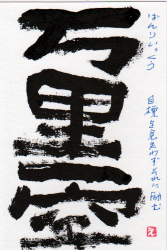 万里一空
ばんりいっくう
目標を見失わずそれに励む